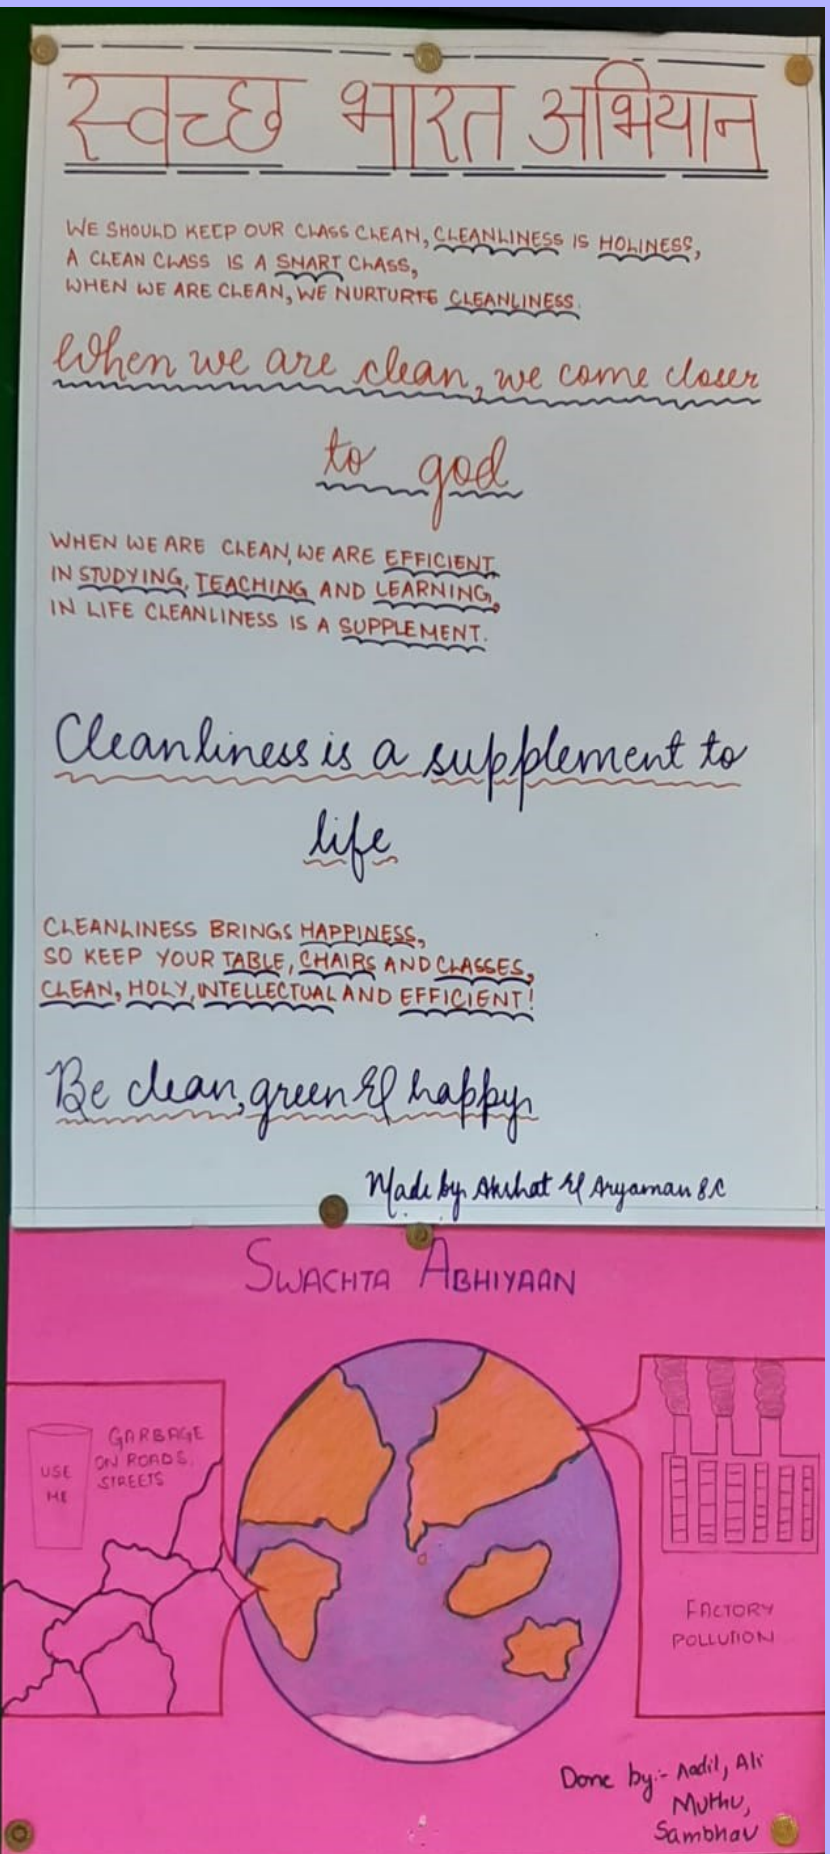 स्वच्छ भारत अभियान
WE SHOULD KEEP OUR CLASS CLEAN, CLEANLINESS IS HOLINESS,
A CLEAN CLASS IS A SMART CLASS,
WHEN WE ARE CLEAN, WE NURTURTE CLEANLINESS.
When we are clean, we come closer
to god
WHEN WE ARE CLEAN, WE ARE EFFICIENT
IN STUDYING, TEACHING AND LEARNING,
IN LIFE CLEANLINESS IS A SUPPLEMENT.
Cleanliness is a supplement to
life
CLEANLINESS BRINGS HAPPINESS,
SO KEEP YOUR TABLE, CHAIRS AND CLASSES,
CLEAN, HOLY, INTELLECTUAL AND EFFICIENT!
Be clean, green & happy
Made by Akshat & Aryaman 8.C
SWACHTA ABHIYAAN
GARBAGE
ON ROADS,
STREETS
USE
ME
FACTORY
POLLUTION
Done by:- Aadil, Ali
Muthu,
Sambhav